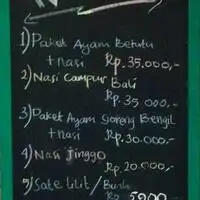 1) Paket Ayam Betutu
+ nasi Rp. 35.000,-
2) Nasi Campur Bali
Rp. 35.000,-
3) Paket Ayam Goreng Bengil
+ nasi Rp. 30.000,-
4) Nasi Jinggo
Rp. 20.000,-
5) Sate Lilit /
Rp 5000